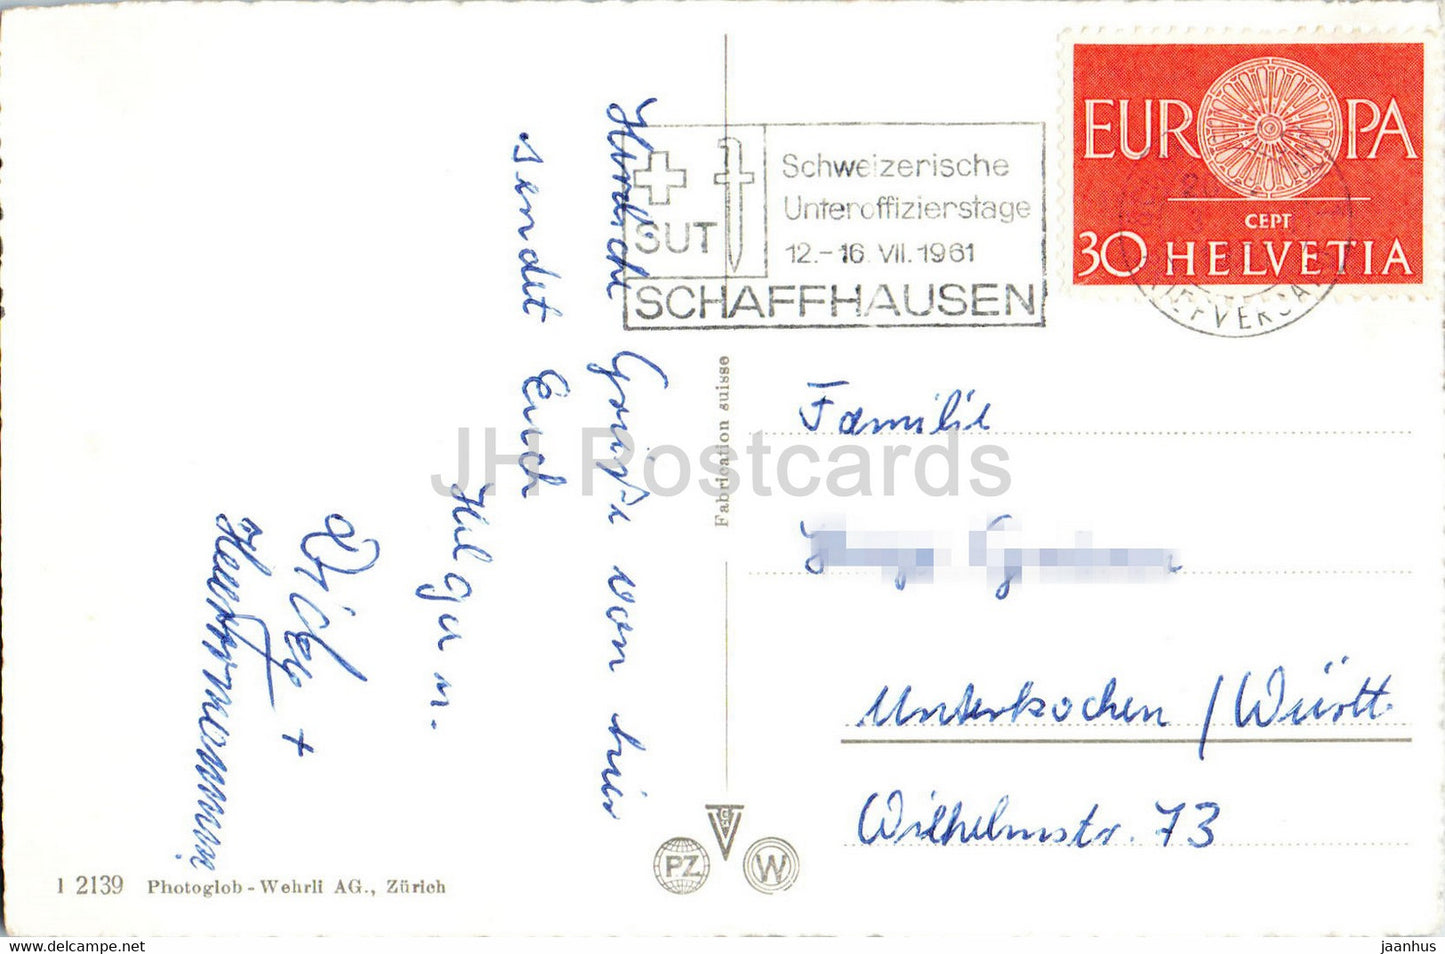 Herzliche Grüße von hier
sendet Euch
Helga m.
+
EUROPA
CEPT
30 HELVETIA
SUT
Schweizerische
Unteroffizierstage
12.-16.VII.1961
SCHAFFHAUSEN
BRIEFVERSAND
Fabrication suisse
Familie
Unterkochen / Württ.
Wilhelmstr. 73
PZ
W
1 2139 Photoglob-Wehrli AG., Zürich
JH Postcards
delcampe.net
jaanhus